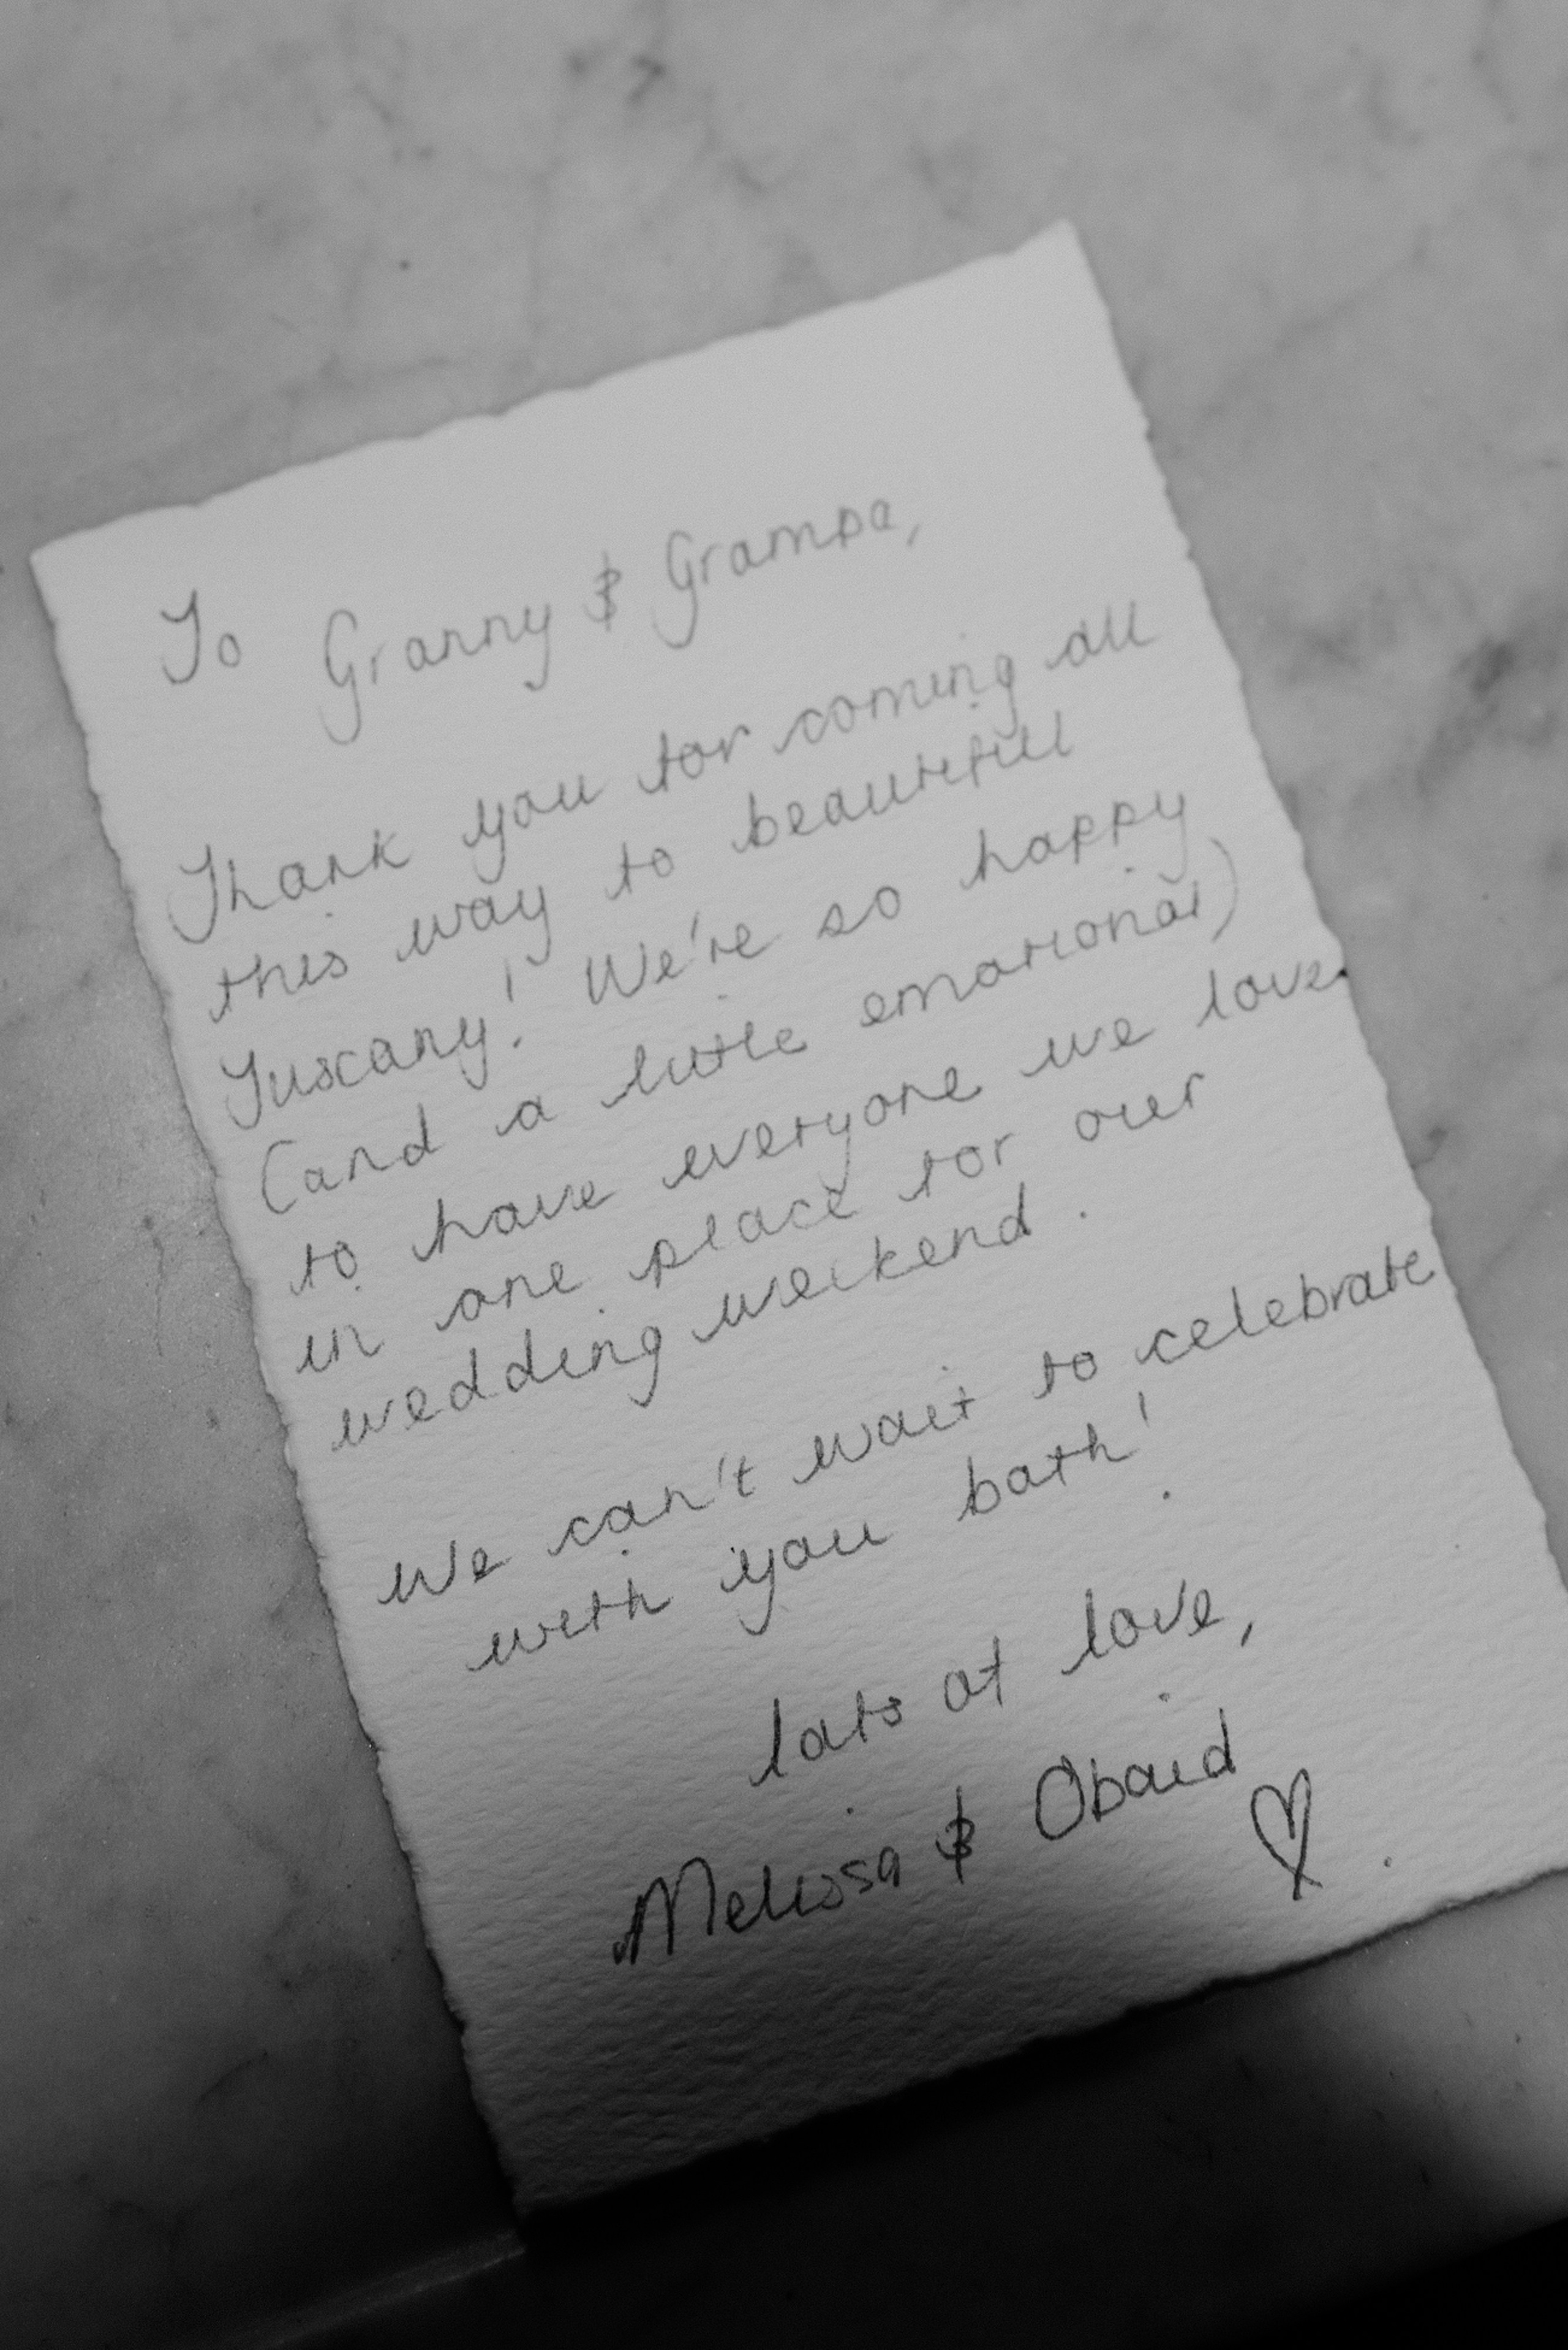 To Granny & Grampa,
Thank you for coming all
this way to beautiful
Tuscany! We're so happy
(and a little emotional)
to have everyone we love
in one place for our
wedding weekend.
We can't wait to celebrate
with you both!
lots of love,
Melissa & Obaid